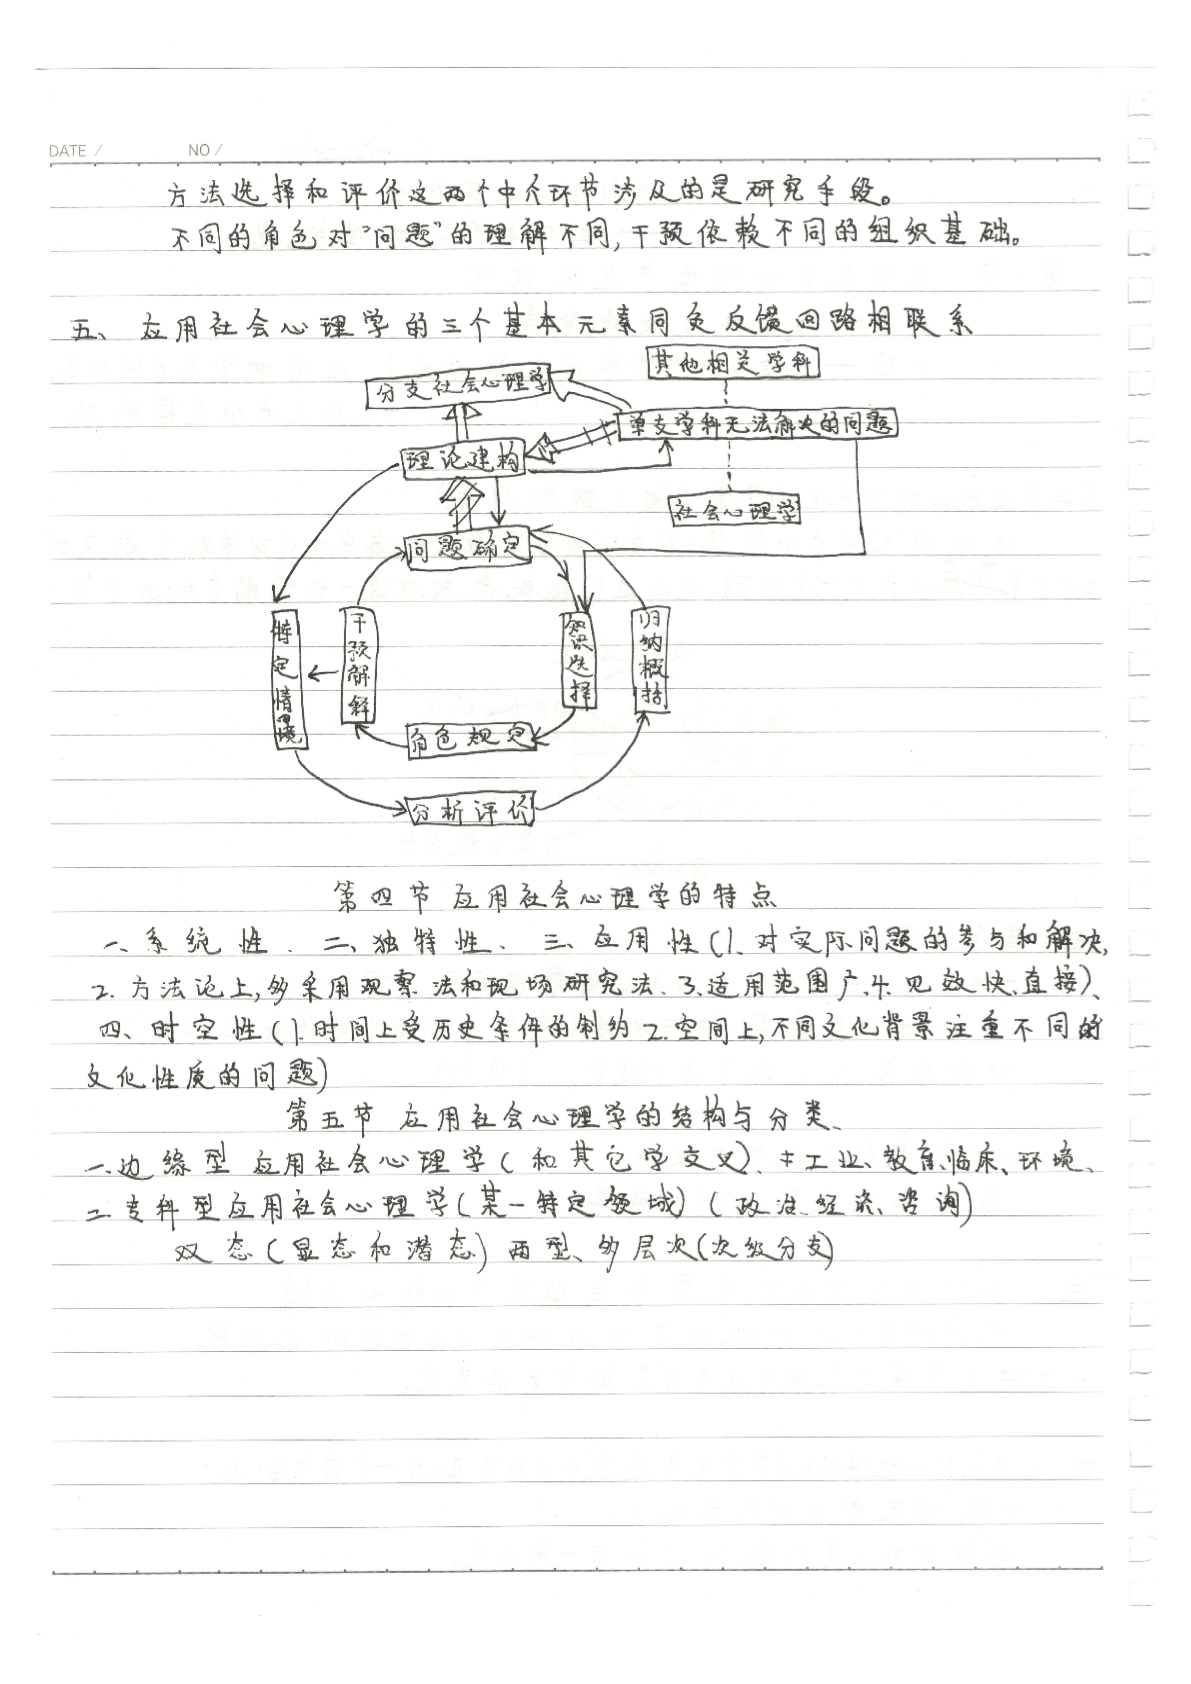 DATE /	NO /
方法选择和评价这两个中介环节涉及的是研究手段。
不同的角色对"问题"的理解不同,干预依赖不同的组织基础。
五、应用社会心理学的三个基本元素同负反馈回路相联系
其他相关学科
分支社会心理学
单支学科无法解决的问题
理论建构
社会心理学
问题确定
特定情境
干预解释
知识选择
归纳概括
角色规定
分析评价
第四节 应用社会心理学的特点
一、系统性、二、独特性、三、应用性(1.对实际问题的参与和解决,
2.方法论上,多采用观察法和现场研究法、3.适用范围广、4.见效快、直接)、
四、时空性(1.时间上受历史条件的制约 2.空间上,不同文化背景注重不同的
文化性质的问题)
第五节 应用社会心理学的结构与分类、
一、边缘型应用社会心理学(和其它学交叉)、工业、教育、临床、环境、
二、专科型应用社会心理学(某一特定领域)(政治、经济、咨询)
双态(显态和潜态)两型、多层次(次级分支)